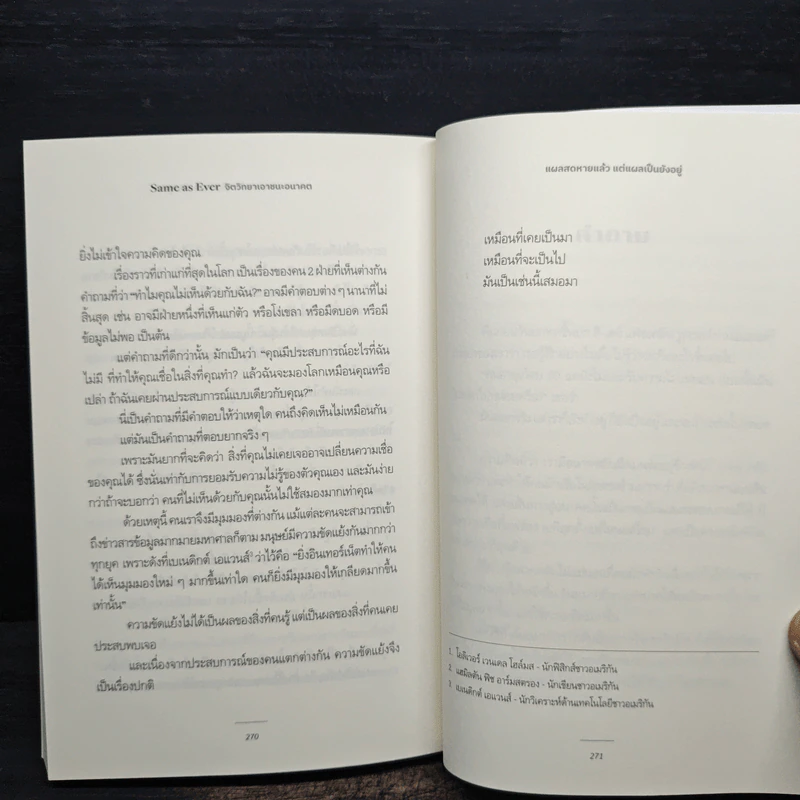 Same as Ever จิตวิทยาเอาชนะอนาคต
ยิ่งไม่เข้าใจความคิดของคุณ
เรื่องราวที่เก่าแก่ที่สุดในโลก เป็นเรื่องของคน 2 ฝ่ายที่เห็นต่างกัน
คำถามที่ว่า “ทำไมคุณไม่เห็นด้วยกับฉัน?” อาจมีคำตอบต่าง ๆ นานาที่ไม่
สิ้นสุด เช่น อาจมีฝ่ายหนึ่งที่เห็นแก่ตัว หรือโง่เขลา หรือมืดบอด หรือมี
ข้อมูลไม่พอ เป็นต้น
แต่คำถามที่ดีกว่านั้น มักเป็นว่า “คุณมีประสบการณ์อะไรที่ฉัน
ไม่มี ที่ทำให้คุณเชื่อในสิ่งที่คุณทำ? แล้วฉันจะมองโลกเหมือนคุณหรือ
เปล่า ถ้าฉันเคยผ่านประสบการณ์แบบเดียวกับคุณ?”
นี่เป็นคำถามที่มีคำตอบให้ว่าเหตุใด คนถึงคิดเห็นไม่เหมือนกัน
แต่มันเป็นคำถามที่ตอบยากจริง ๆ
เพราะมันยากที่จะคิดว่า สิ่งที่คุณไม่เคยเจออาจเปลี่ยนความเชื่อ
ของคุณได้ ซึ่งนั่นเท่ากับการยอมรับความไม่รู้ของตัวคุณเอง และมันง่าย
กว่าถ้าจะบอกว่า คนที่ไม่เห็นด้วยกับคุณนั้นไม่ใช้สมองมากเท่าคุณ
ด้วยเหตุนี้ คนเราจึงมีมุมมองที่ต่างกัน แม้แต่ละคนจะสามารถเข้า
ถึงข่าวสารข้อมูลมากมายมหาศาลก็ตาม มนุษย์มีความขัดแย้งกันมากกว่า
ทุกยุค เพราะดังที่เบเนดิกต์ เอแวนส์³ ว่าไว้คือ “ยิ่งอินเทอร์เน็ตทำให้คน
ได้เห็นมุมมองใหม่ ๆ มากขึ้นเท่าใด คนก็ยิ่งมีมุมมองให้เกลียดมากขึ้น
เท่านั้น”
ความขัดแย้งไม่ได้เป็นผลของสิ่งที่คนรู้ แต่เป็นผลของสิ่งที่คนเคย
ประสบพบเจอ
และเนื่องจากประสบการณ์ของคนแตกต่างกัน ความขัดแย้งจึง
เป็นเรื่องปกติ
270
แผลสดหายแล้ว แต่แผลเป็นยังอยู่
เหมือนที่เคยเป็นมา
เหมือนที่จะเป็นไป
มันเป็นเช่นนี้เสมอมา
1. โอลิเวอร์ เวนเดล โฮล์มส - นักฟิสิกส์ชาวอเมริกัน
2. แฮมิลตัน ฟิช อาร์มสตรอง - นักเขียนชาวอเมริกัน
3. เบเนดิกต์ เอแวนส์ - นักวิเคราะห์ด้านเทคโนโลยีชาวอเมริกัน
271